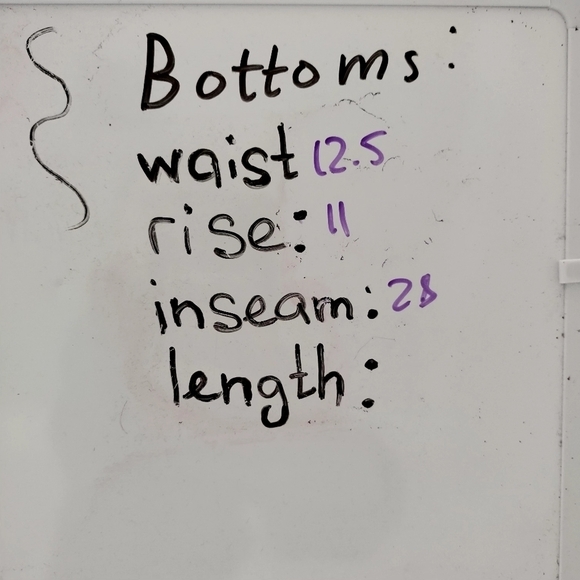 Bottoms:
waist 12.5
rise: 11
inseam: 28
length: